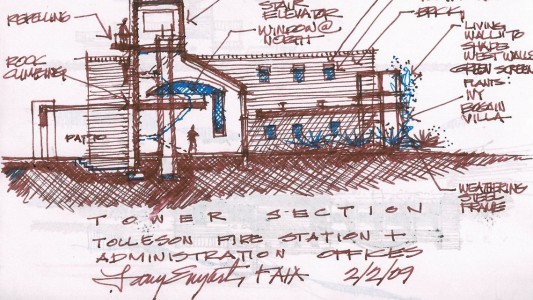 STAIR
ELEVATOR
WINDOW @
NORTH
REPELLING
ROCK
CLIMBING
PATIO
BRICK
LIVING
WALL TO
SHADE
WEST WALLS
GREEN SCREEN
PLANTS:
IVY
BOGAIN
VILLA
WEATHERING
STEEL
FRAMES
TOWER SECTION
TOLLESON FIRE STATION +
ADMINISTRATION OFFICES
FAIA 2/2/09